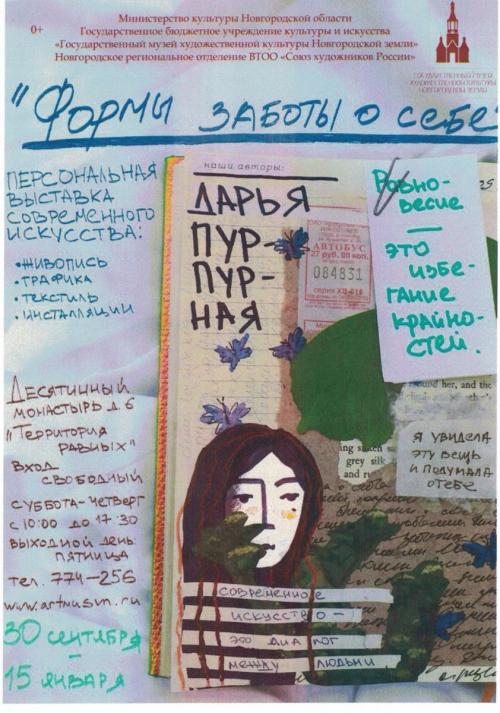 0+
Министерство культуры Новгородской области
Государственное бюджетное учреждение культуры и искусства
«Государственный музей художественной культуры Новгородской земли»
Новгородское региональное отделение ВТОО «Союз художников России»
ГОСУДАРСТВЕННЫЙ МУЗЕЙ
ХУДОЖЕСТВЕННОЙ КУЛЬТУРЫ
НОВГОРОДСКОЙ ЗЕМЛИ
"Формы заботы о себе
ПЕРСОНАЛЬНАЯ
ВЫСТАВКА
СОВРЕМЕННОГО
ИСКУССТВА:
• ЖИВОПИСЬ
• ГРАФИКА
• ТЕКСТИЛЬ
• ИНСТАЛЛЯЦИИ
наши авторы:
ДАРЬЯ
ПУР-
ПУР-
НАЯ
АВТОБУС
27 руб. 00 коп.
084831
серия ХЦ-616
25
Равно-
весие
—
это
избе-
гание
крайно-
стей.
round her, and the
grey silk
Я УВИДЕЛА
ЭТУ ВЕЩЬ
И ПОДУМАЛА
О ТЕБЕ
Десятинный
монастырь д. 6
"Территория
равных"
Вход
свободный
суббота-четверг
с 10:00 до 17:30
выходной день:
пятница
тел. 774-256
www.artmusvn.ru
30 сентября
—
15 января
СОВРЕМЕННОЕ
ИСКУССТВО —
ЭТО ДИАЛОГ
МЕЖДУ ЛЮДЬМИ